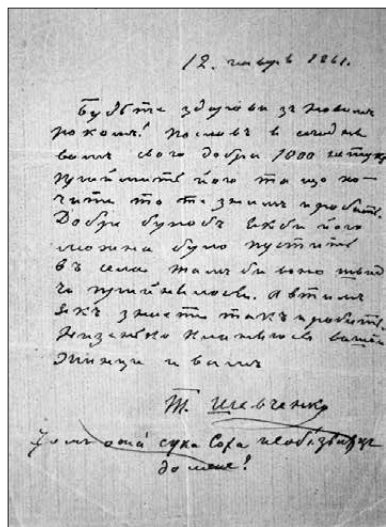 12. январь 1861.
Будьте здорови зъ новымъ
рокомъ! Пославъ я сегодня
вамъ свого добра 1000 штукъ
приймить його та що хо-
чите то те з нимъ и робить.
Добри булобъ якби його
можна було пустить
въ села тамъ би воно швид
че прийнялося. А втимъ
якъ знаете такъ и робить.
Низенько кланяюсь вашій
жинци и вамъ
Т. Шевченко
Чомъ ота сука Сора необізветця
до мене!